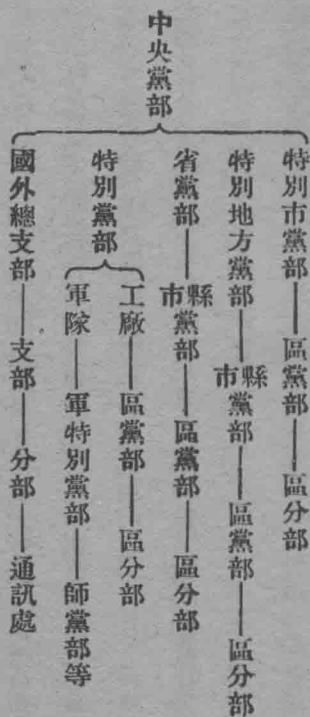 中央黨部
特別市黨部——區黨部——區分部
特別地方黨部——市縣黨部——區黨部——區分部
省黨部——市縣黨部——區黨部——區分部
特別黨部
工廠——區黨部——區分部
軍隊——軍特別黨部——師黨部等
國外總支部——支部——分部——通訊處